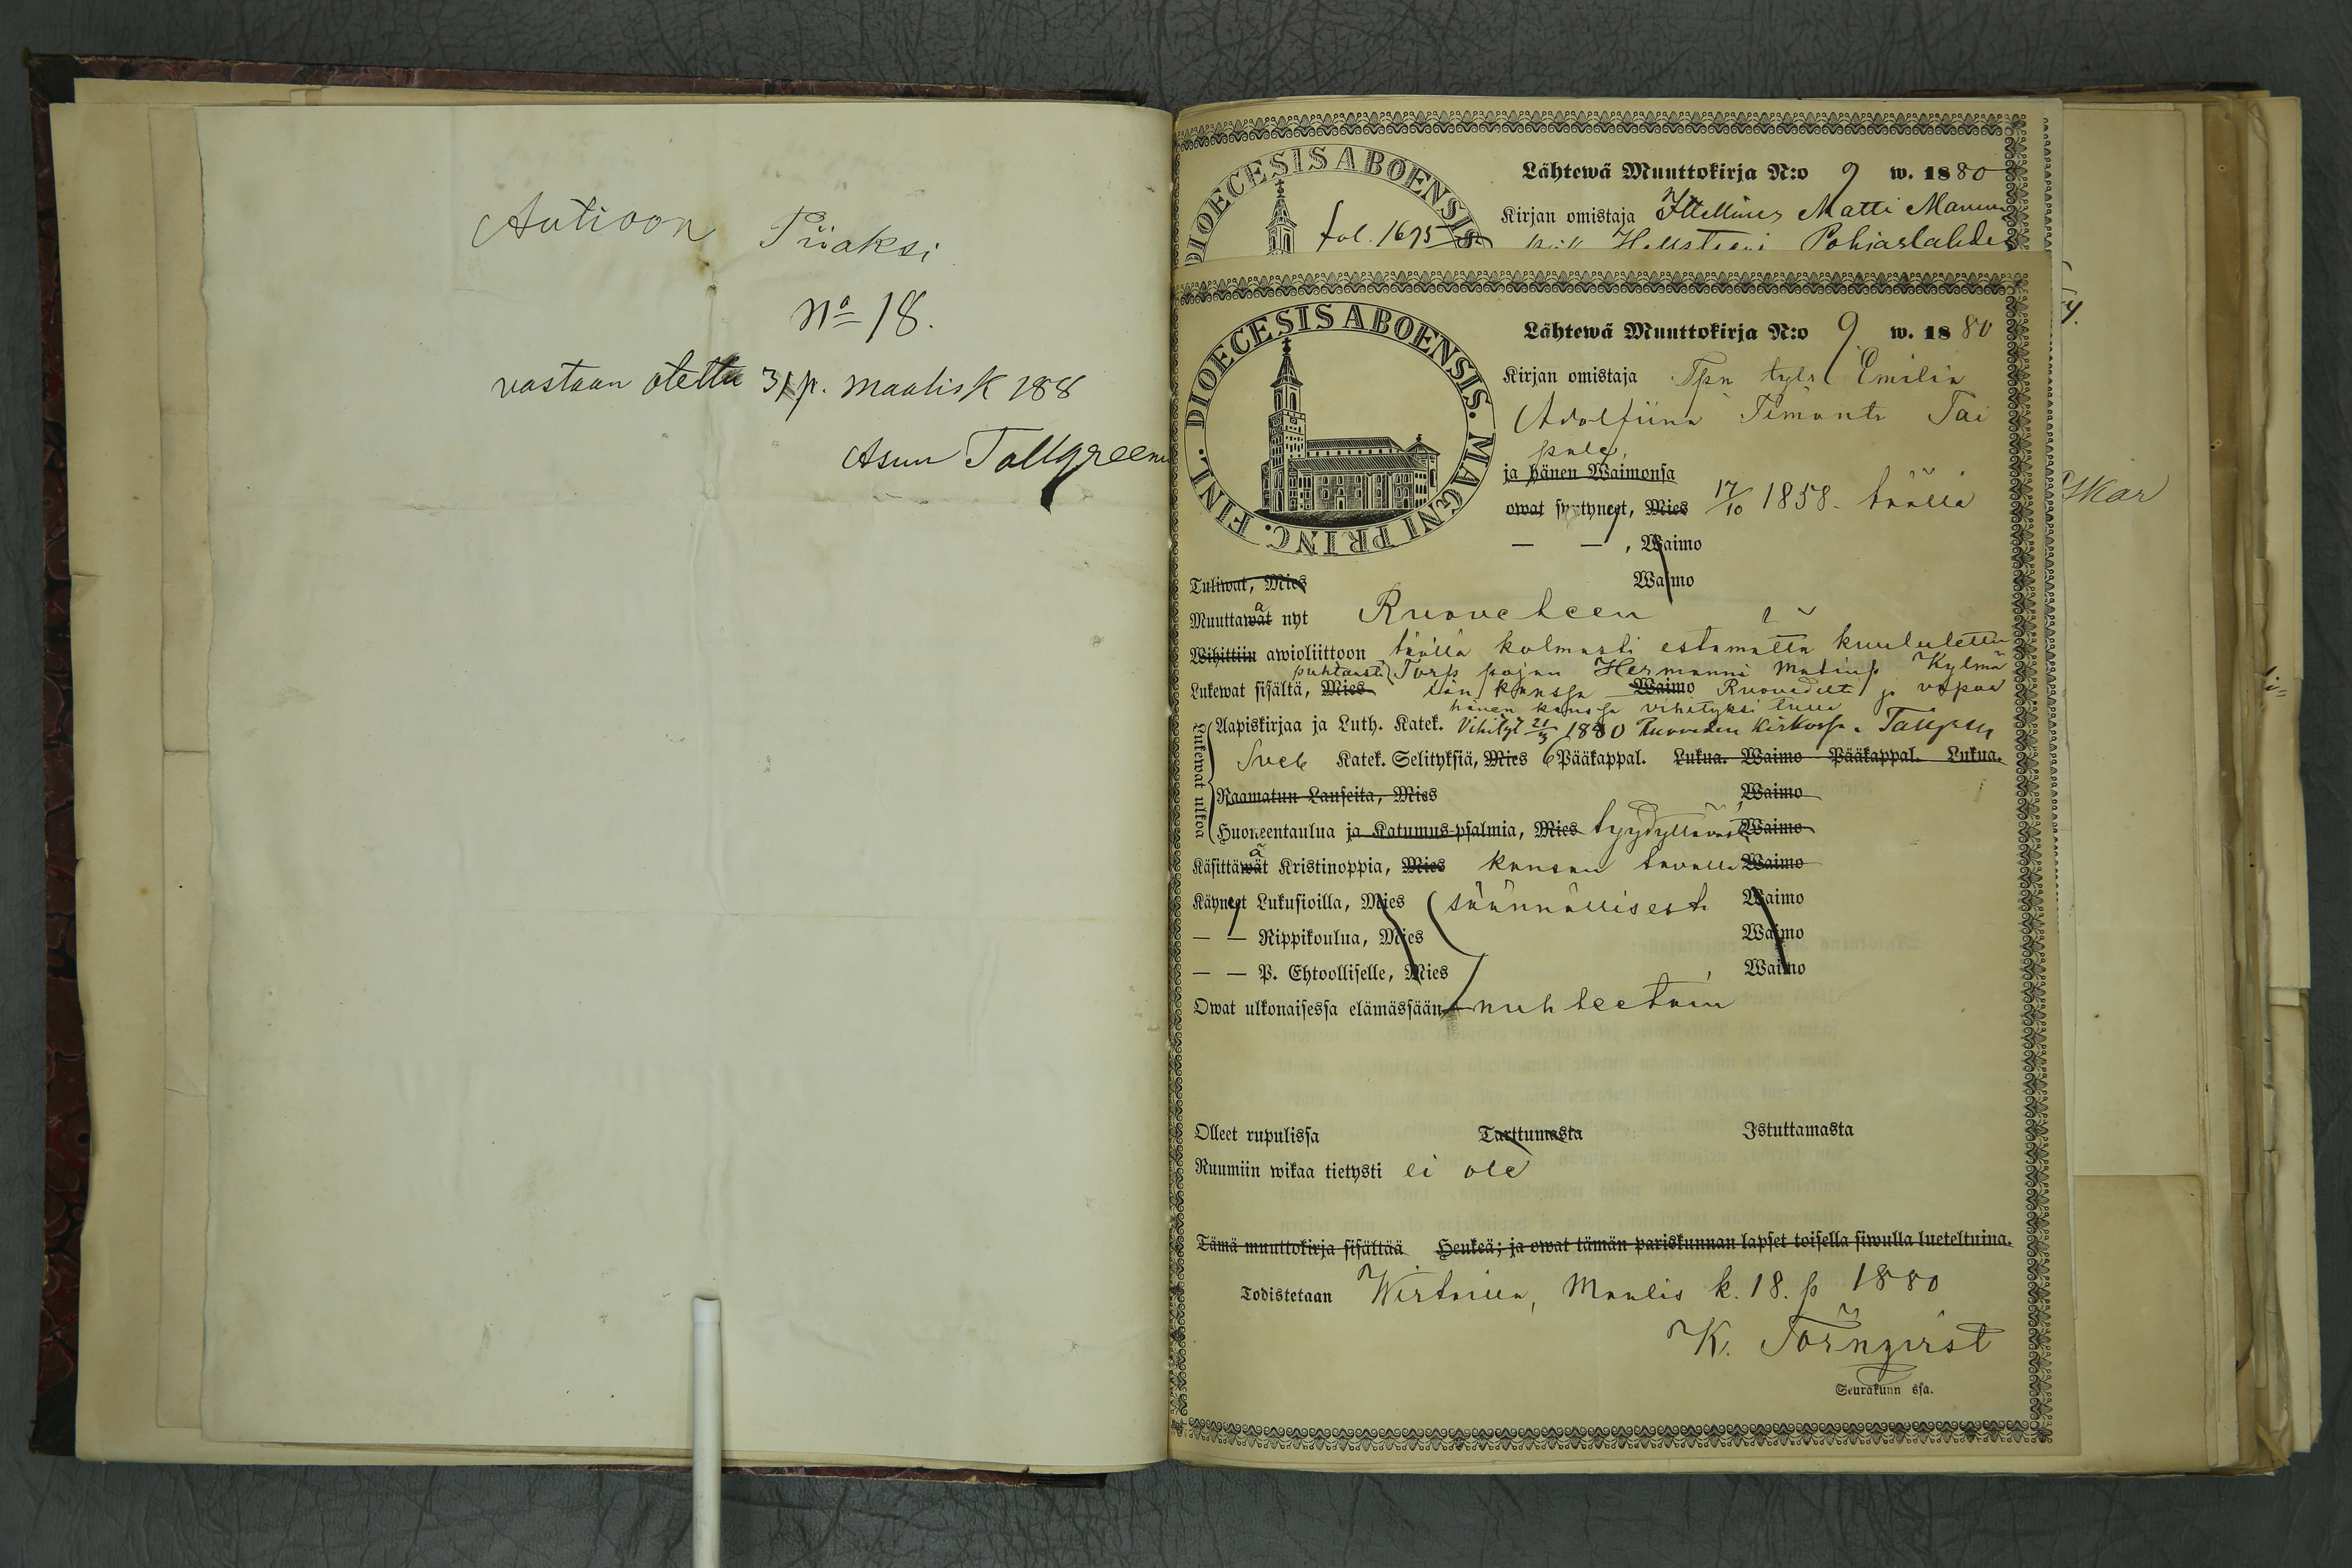 Autioon Piiaksi
No 18.
vastaan otettu 31 p. maalisk 188
Asun Tallgreen
DIOECESIS ABOENSIS
fol. 1695
Lähtewä Muuttokirja N:o 9 w. 1880
Kirjan omistaja Itellinen Matti Manun
Hellsteni Pohjaslahdes
DIOECESIS ABOENSIS. MAGNI PRINC. FINL.
Lähtewä Muuttokirja N:o 9. w. 1880
Kirjan omistaja Tpn tytr Emilia
Adolfiina Timontr Tai
pale,
ja hänen Waimonsa
owat syntyneet, Mies 17/10 1858. täällä
— — , Waimo
Tuliwat, Mies Waimo
Muuttawat ä nyt Ruoveteen
Wihittiin awioliittoon täällä kolmasti estämättä kuulutettu
puhtaasti Torp pojan Hermanni Matinp Kylmä
Lukewat sisältä, Mies kanssa Waimo Ruovedelt ja vapaa
hänen kanssa vihityksi tulla
Lukewat ulkoa
Aapiskirjaa ja Luth. Katek. Vihityt 21/3 1880 Ruoveden Kirkossa.
Sveb Katek. Selityksiä, Mies 6 Pääkappal. Lukua. Waimo Pääkappal. Lukua.
Raamatun Lauseita, Mies Waimo
Huoneentaulua ja Katumus-psalmia, Mies tyydyttävästi Waimo
Käsittäwät ä Kristinoppia, Mies kansan tavalla Waimo
Käyneet Lukusioilla, Mies säännöllisesti Waimo
— — Rippikoulua, Mies Waimo
— — P. Ehtoolliselle, Mies Waimo
Owat ulkonaisessa elämässään nuhteetoin
Olleet rupulissa Tarttumasta Istuttamasta
Ruumiin wikaa tietysti ei ole
Tämä muuttokirja sisältää Henkeä; ja owat tämän pariskunnan lapset toisella siwulla lueteltuina.
Todistetaan Wirtailla, Maalis k. 18. p 1880
K. Törnqvist
Seurakunn ssa.